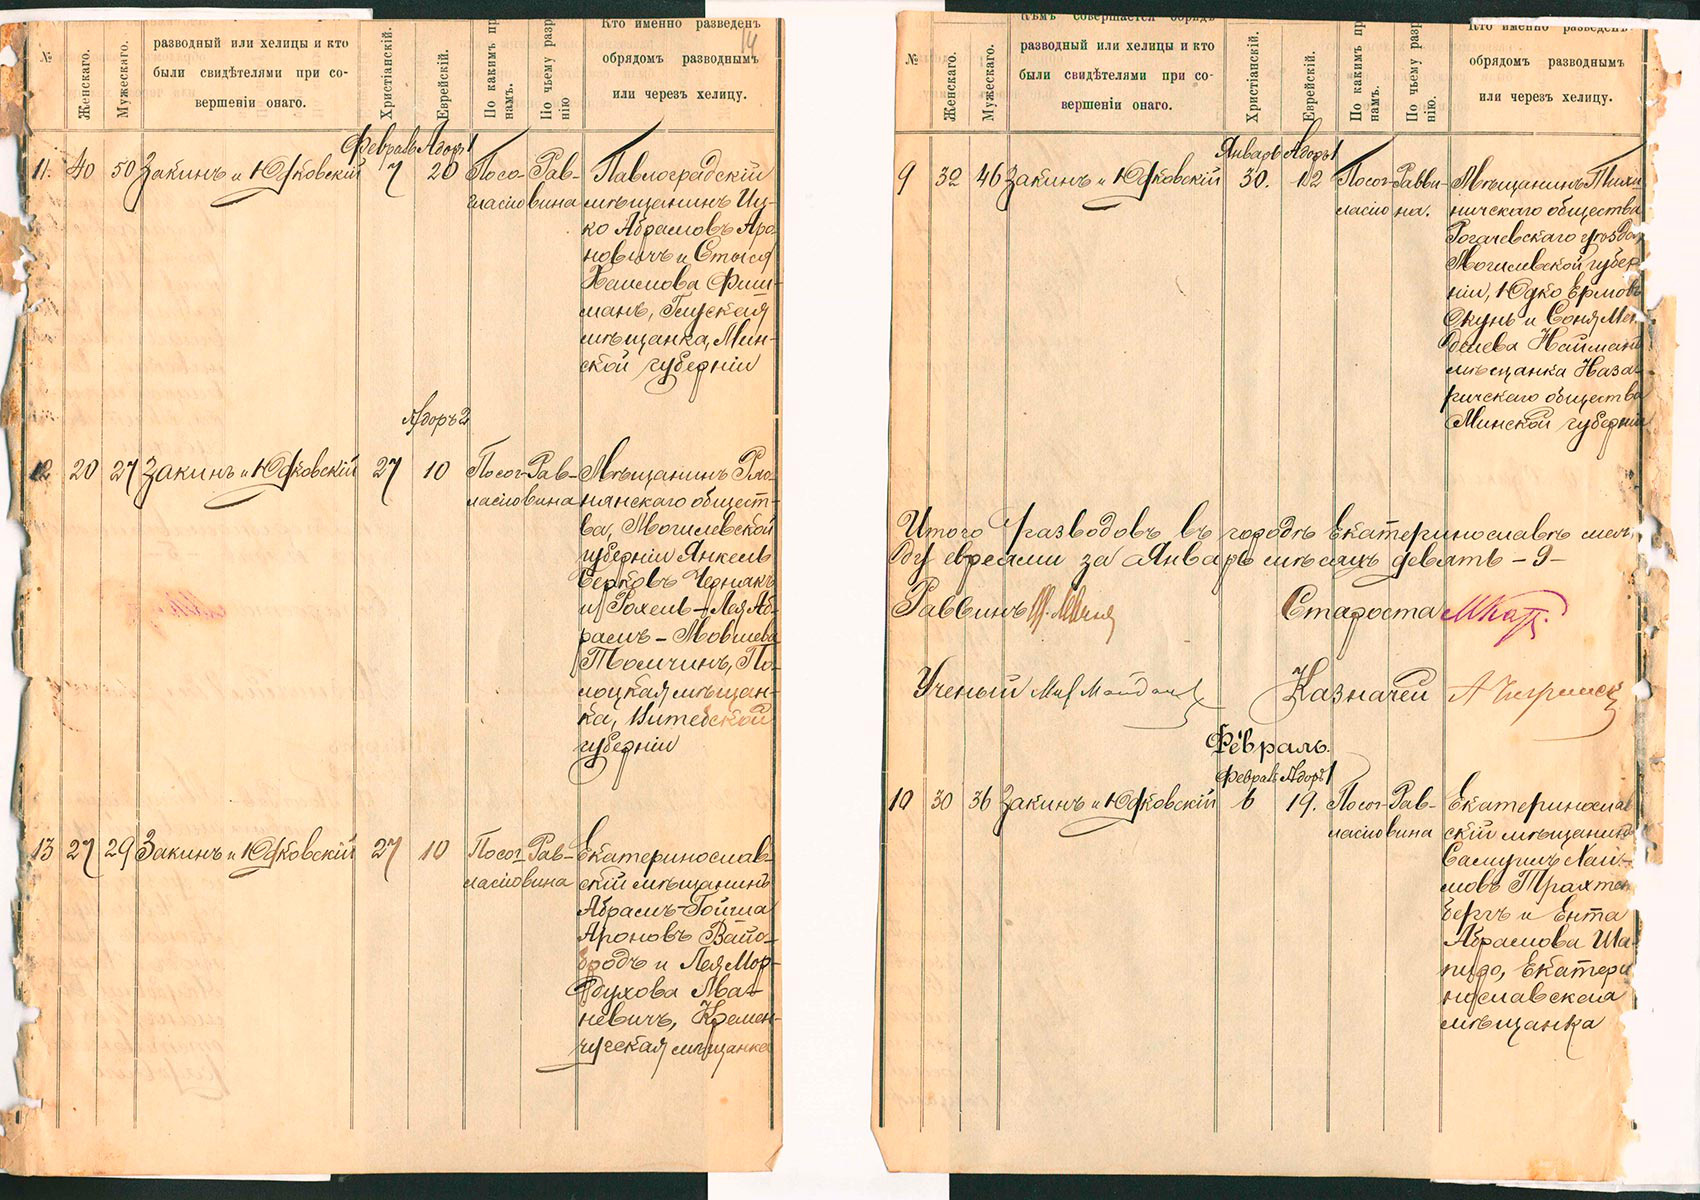 14
№
Женскаго.
Мужескаго.
разводный или хелицы и кто
были свидѣтелями при со-
вершеніи онаго.
Христіанскій.
Еврейскій.
По какимъ пр
намъ.
По чьему разр
нію
Кто именно разведенъ
обрядомъ разводнымъ
или черезъ хелицу.
Февраль Адоръ 1
11. 40 50 Закинъ и Юдковскій 7 20 Посо- Рав- Павлоградскій
гласію вина мѣщанинъ Иц-
ко Абрамовъ Аро
новичъ и Стыся
Хаимова Фиш-
манъ, Глуская
мѣщанка, Мин-
ской губерніи
Адоръ 2
12 20 27 Закинъ и Юдковскій 27 10 Посог- Рав- Мѣщанинъ
ласію вина нянскаго общест-
ва, Могилевской
губерніи Янкель
Берковъ Чернякъ
и Рохель-Лея Аб-
рамъ-Мовшева
Толчинъ, По-
лоцкая мѣщан-
ка, Витебской
губерніи
13 27 29 Закинъ и Юдковскій 27 10 Посог- Рав- Екатеринослав-
ласію вина скій мѣщанинъ
Абрамъ-Гойшла
Ароновъ Вайс-
бродъ и Лея Мор-
духова Ма-
невичъ, Кремен-
чугская мѣщанка
№
Женскаго.
Мужескаго.
Кѣмъ совершается обрядъ
разводный или хелицы и кто
были свидѣтелями при со-
вершеніи онаго.
Христіанскій.
Еврейскій.
По какимъ пр
намъ.
По чьему разр
нію.
Кто именно разведенъ
обрядомъ разводнымъ
или черезъ хелицу.
Январь Адоръ 1
9 32 46 Закинъ и Юдковскій 30. 12 Посог- Равви- Мѣщанинъ Тихи
ласію на. ничскаго общества
Рогачевскаго уѣзда
Могилевской губер
ніи, Юдко Ермовъ
Окунь и Соня Мен
делева Найманъ
мѣщанка Наза-
ричскаго общества
Минской губерніи
Итого разводовъ въ городѣ Екатеринославѣ меж-
ду евреями за Январь мѣсяцъ девять - 9 -
Раввинъ Староста
Ученый Казначей
Февраль.
Февраль Адоръ 1
10 30 36 Закинъ и Юдковскій 6 19. Посог- Рав- Екатеринослав
ласію вина скій мѣщанинъ
Самуилъ Хаи-
мовъ Трахтен
бергъ и Ента
Абрамова Ша-
пиро, Екатери
нославская
мѣщанка